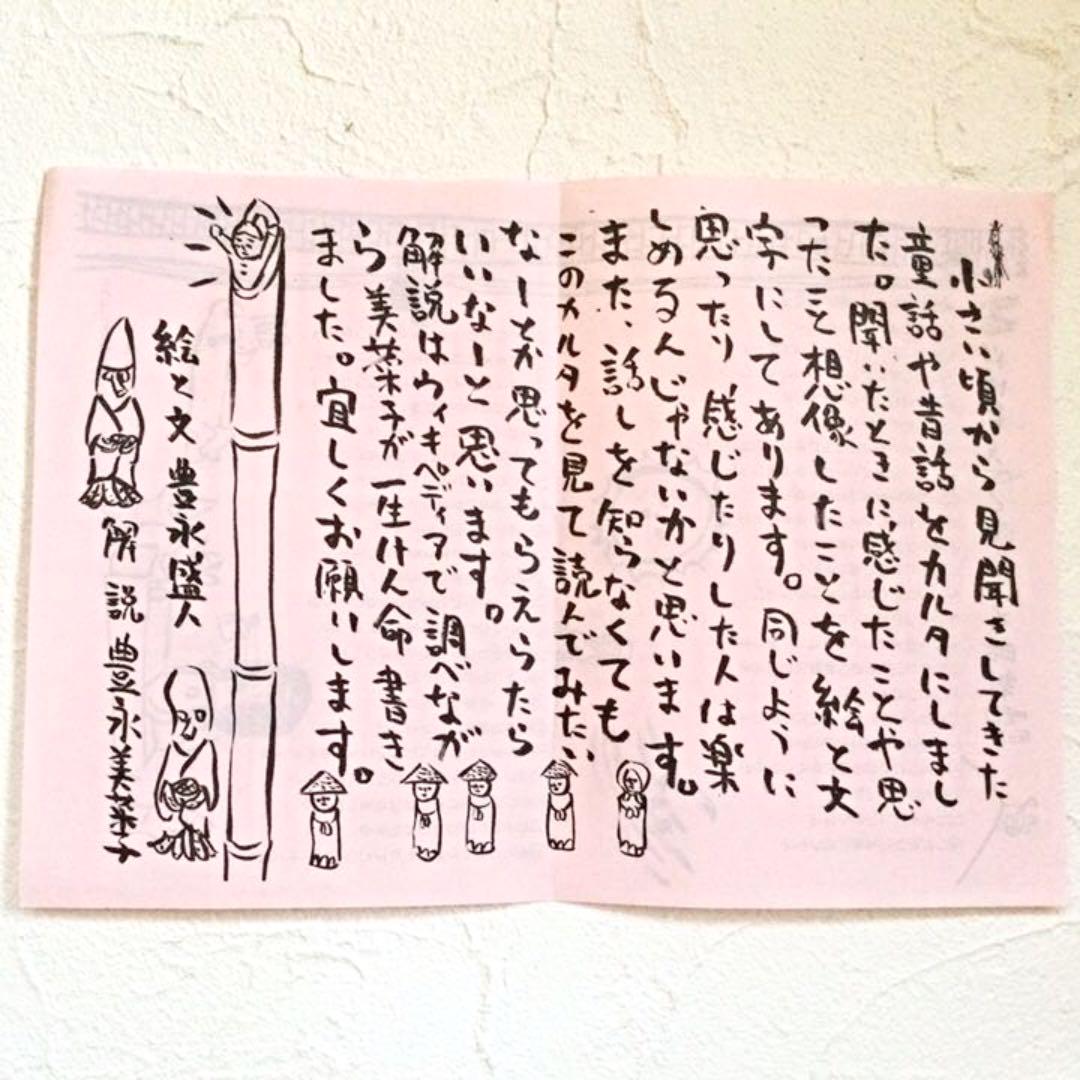 小さい頃から見聞きしてきた
童話や昔話をカルタにしまし
た。聞いたときに感じたことや思
ったこと想像したことを絵と文
字にしてあります。同じように
思ったり感じたりした人は楽
しめるんじゃないかと思います。
また、話しを知らなくても
このカルタを見て読んでみたい
なーとか思ってもらえらたら
いいなーと思います。
解説はウィキペディアで調べなが
ら美菜子が一生けん命書き
ました。宜しくお願いします。
絵と文 豊永盛人
解説 豊永美菜子